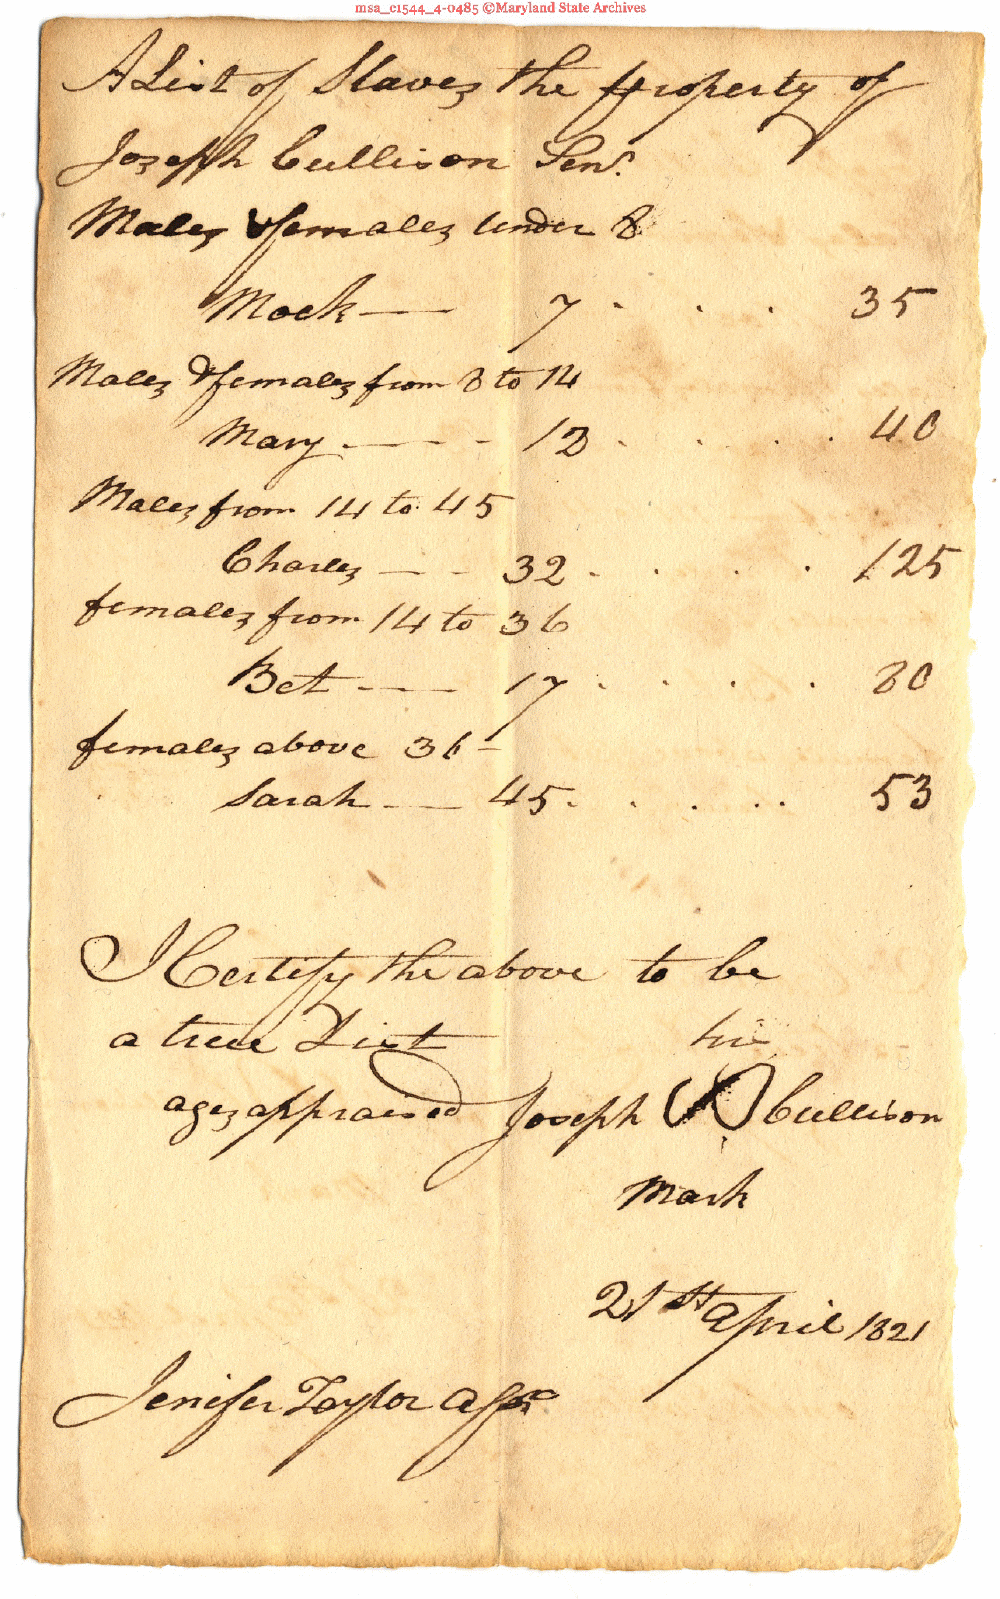 msa_c1544_4-0485 ©Maryland State Archives
A List of Slaves the property of
Joseph Cullison Senr.
Males & females under 8
Mock — 7 . . . 35
Males & females from 8 to 14
Mary . — - - 12 . . . . 40
Males from 14 to 45
Charles — - 32 . . . . . 125
females from 14 to 36
Bet - — 17 . . . . 80
females above 36 -
Sarah - — 45 . . . . . 53
I Certify the above to be
a true List his
ages appraised Joseph X Cullison
mark
21st April 1821
Jenifer Taylor Assr